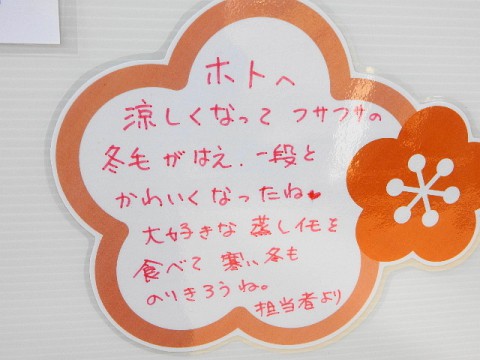 ホトへ
涼しくなって フサフサの
冬毛がはえ、一段と
かわいくなったね♥
大好きな 蒸しイモを
食べて 寒い冬も
のりきろうね。
担当者より